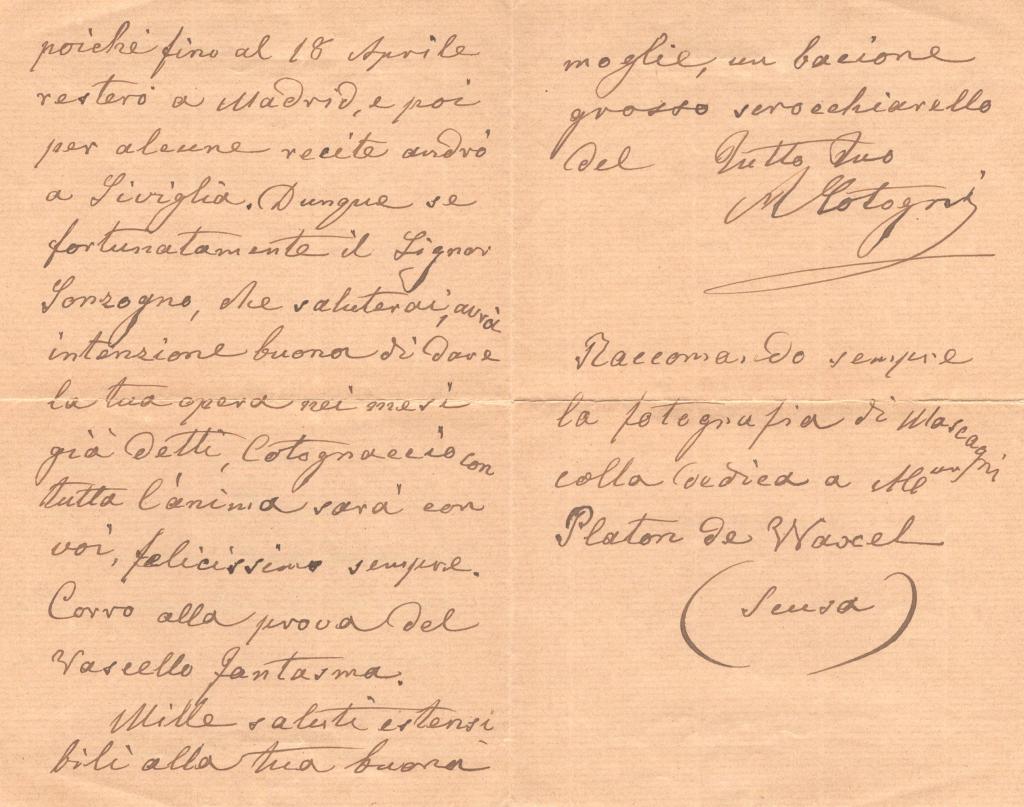 poiché fino al 18 Aprile
resterò a Madrid, e poi
per alcune recite andrò
a Siviglia. Dunque se
fortunatamente il Signor
Sonzogno, che saluterai, avrà
intenzione buona di dare
la tua opera nei mesi
già detti, Cotognaccio con
tutta l'ánima sarà con
voi, felicissimo sempre.
Corro alla prova del
Vascello Fantasma.
Mille saluti estensi
bili alla tua buona
moglie, un bacione
grosso scrocchiarello
del Tutto tuo
A Cotogni
Raccomando sempre
la fotografia di Mascagni
colla dedica a Mʳ
Platon de Waxel
(Scusa)